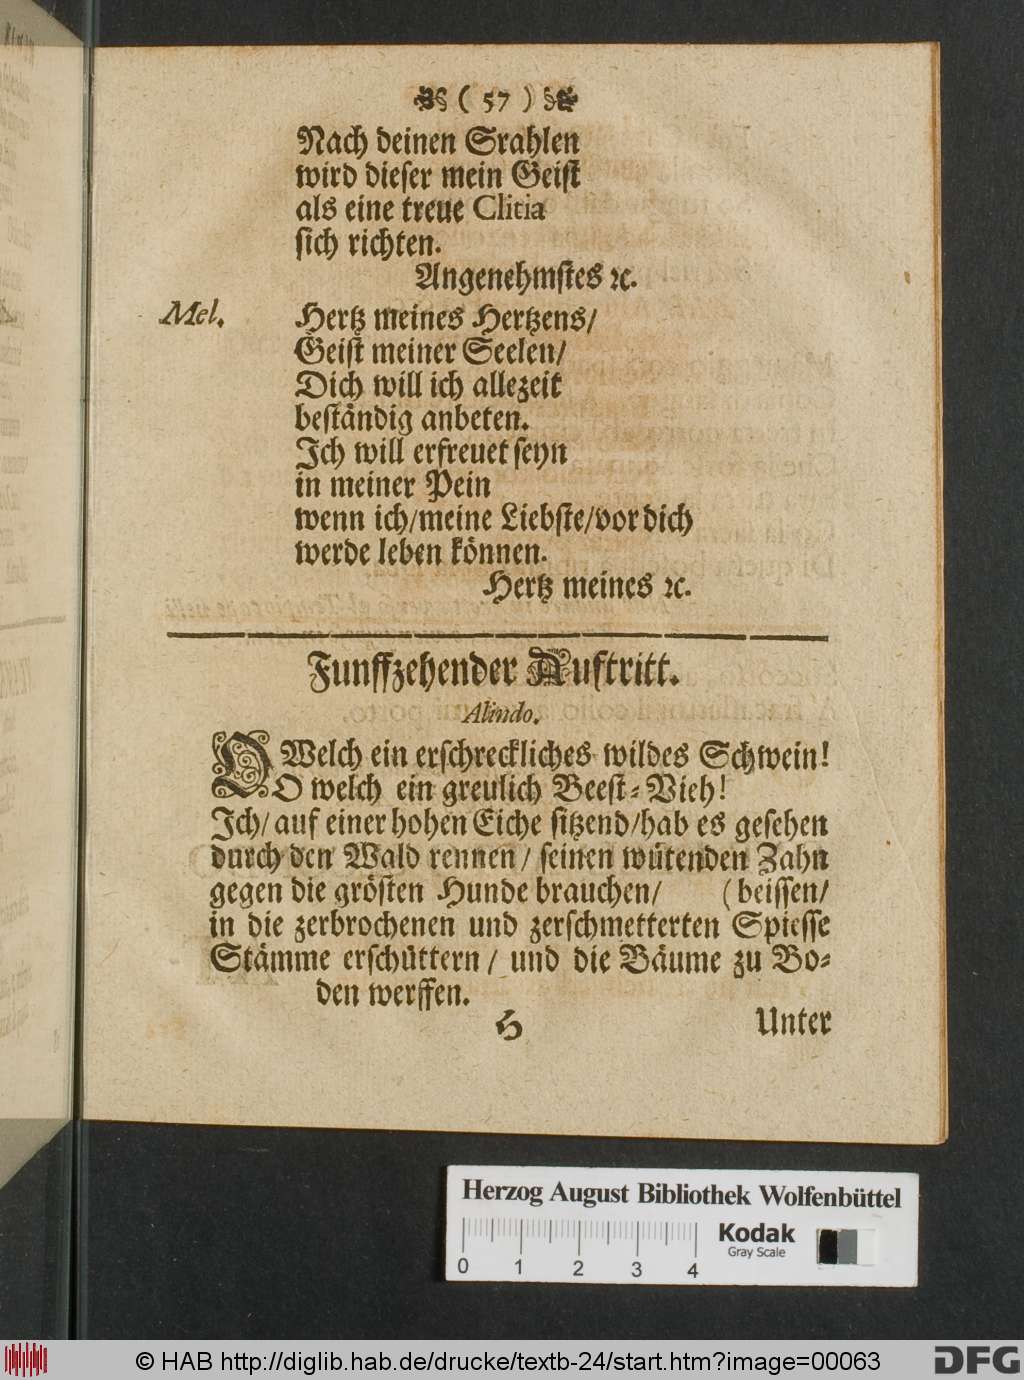 ( 57 )
Nach deinen Srahlen
wird dieser mein Geist
als eine treue Clitia
sich richten.
Angenehmstes ꝛc.
Mel. Hertz meines Hertzens/
Geist meiner Seelen/
Dich will ich allezeit
beständig anbeten.
Ich will erfreuet seyn
in meiner Pein
wenn ich/meine Liebste/vor dich
werde leben können.
Hertz meines ꝛc.
Funffzehender Auftritt.
Alindo.
O Welch ein erschreckliches wildes Schwein!
O welch ein greulich Beest-Vieh!
Ich/ auf einer hohen Eiche sitzend/hab es gesehen
durch den Wald rennen/ seinen wütenden Zahn
gegen die grösten Hunde brauchen/ (beissen/
in die zerbrochenen und zerschmetterten Spiesse
Stämme erschüttern/ und die Bäume zu Bo-
den werffen.
H Unter
Herzog August Bibliothek Wolfenbüttel
Kodak
Gray Scale
0 1 2 3 4
© HAB http://diglib.hab.de/drucke/textb-24/start.htm?image=00063
DFG